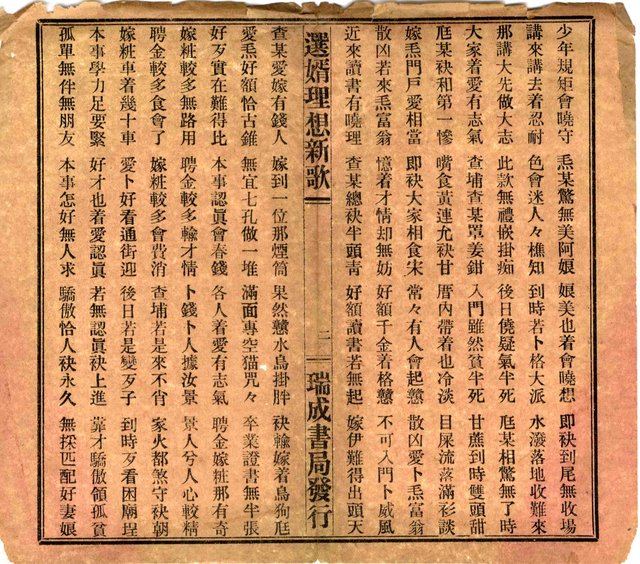 少年規矩會曉守 炁某驚無美阿娘 娘美也着會曉想 即袂到尾無收場
講來講去着忍耐 色會迷人々樵知 到時若卜格大派 水潑落地收難來
那講大先做大志 此款無禮嵌掛痴 後日僥疑氣半死 尫某相驚無了時
大家着愛有志氣 查埔查某罩姜鉗 入門雖然貧半死 甘蔗到時雙頭甜
尫某袂和第一慘 嘴食黃連允袂甘 厝內帶着也冷淡 目屎流落滿衫談
嫁炁門戶愛相當 即袂大家相食宋 常々有人會起戇 散凶愛卜炁富翁
散凶若來炁富翁 憶着才情却無妨 好額千金着格戇 不可入門卜威風
近來讀書有曉理 查某總袂半頭青 好額讀書若無起 嫁伊難得出頭天
選婿理想新歌 二 瑞成書局發行
查某愛嫁有錢人 嫁到一位那煙筒 果然戇水鳥掛脺 袂輸嫁着鳥狗尫
愛炁好額恰古錐 無宜七孔做一堆 滿面專空猫咒々 卒業證書無半張
好歹實在難得比 本事認眞會春錢 各人着愛有志氣 聘金嫁粧那有奇
嫁粧較多無路用 聘金較多輸才情 卜錢卜人據汝景 景人兮人心較精
聘金較多食會了 嫁粧較多會費消 查埔若是來不肖 家火都煞守袂朝
嫁粧車着幾十車 愛卜好看通街迎 後日若是變歹子 到時歹看困廟埕
本事學力足要緊 好才也着愛認眞 若無認眞袂上進 靠才驕傲領孤貧
孤單無伴無朋友 本事怎好無人求 驕傲恰人袂永久 無採匹配好妻娘